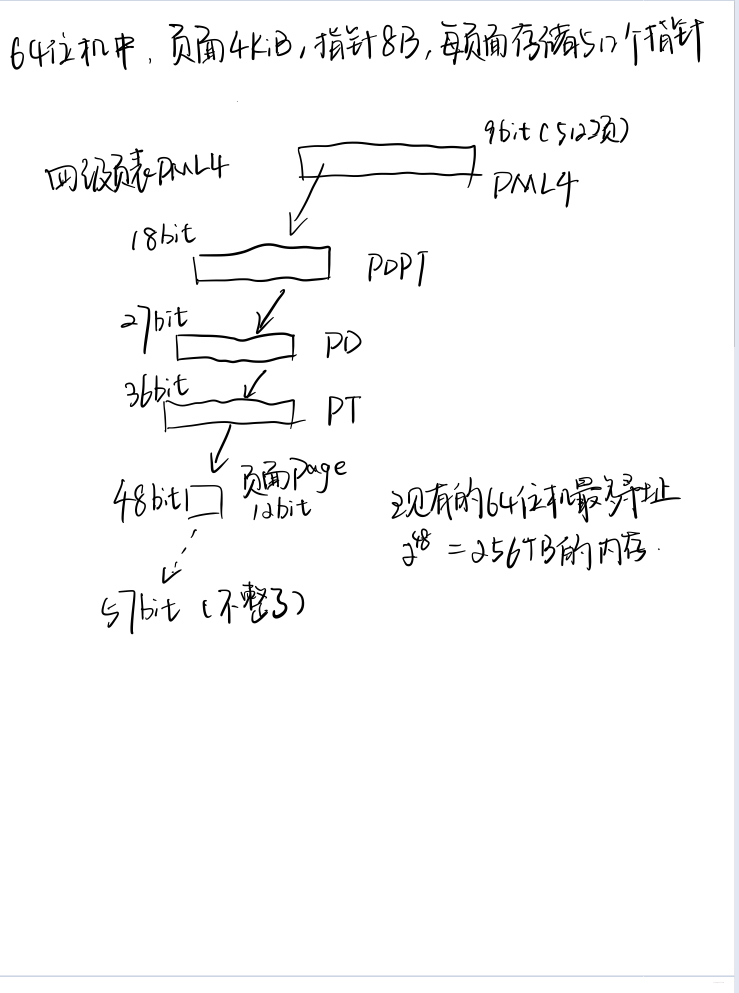 64位机中，页面4KiB，指针8B，每页面存储512个指针
9bit（512项）
四级页表PML4
PML4
18bit
PDPT
27bit
PD
36bit
PT
页面page
48bit
12bit
现有的64位机最多寻址
2^48 = 256TB的内存.
57bit（不整了）